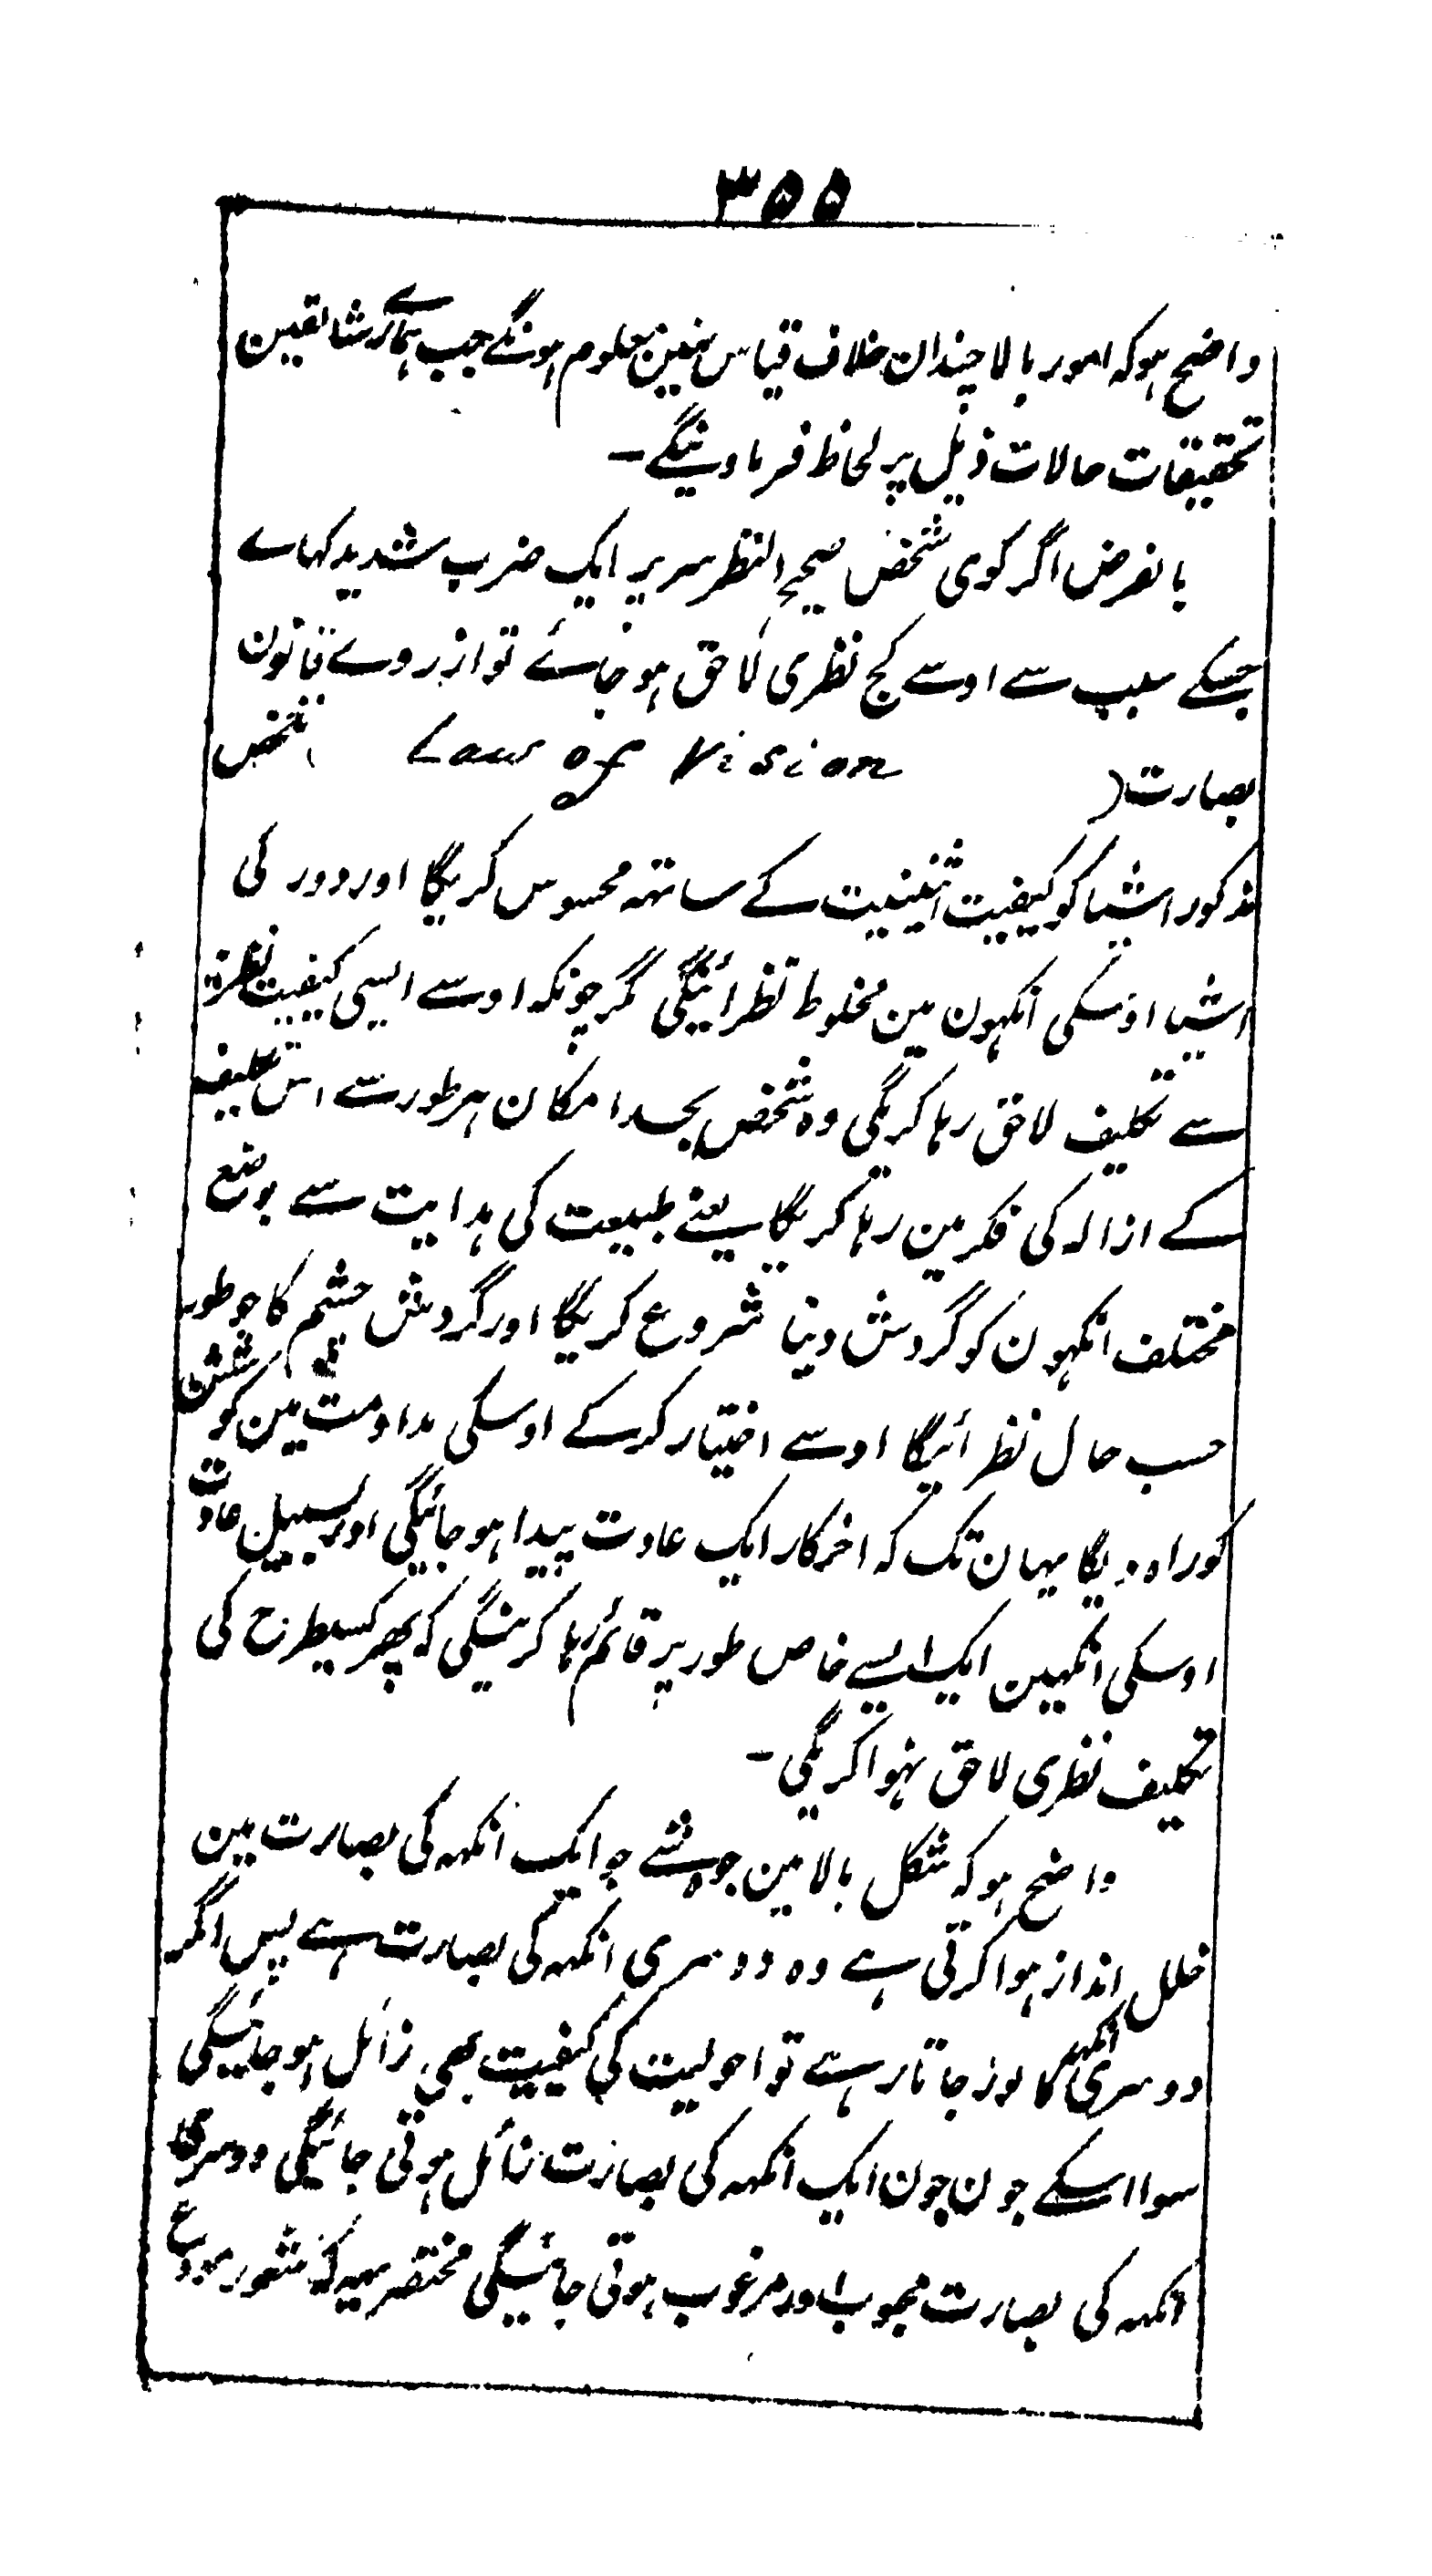 ۳۵۵
واضح ہو کہ امور بالا چندان خلاف قیاس نہین معلوم ہونگے جب ہمارے شائقین
تحقیقات حالات ذیل پر لحاظ فرماوینگے۔
بالفرض اگر کوی شخص صحیح النظر سر پر ایک ضرب شدید کہاے
جسکے سبب سے اوسے کج نظری لاحق ہو جائے تو از روے قانون
بصارت (Law of Vision شخص
مذکور اشیا کو کیفیت اثنینیت کے ساتھ محسوس کریگا اور دور کی
اشیا اوسکی انکہون مین مخلوط نظر ائینگی مگر چونکہ اوسے ایسی کیفیت نظری
سے تکلیف لاحق رہا کریگی وہ شخص بحد امکان ہر طور سے اس تکلیف
کے ازالہ کی فکر مین رہا کریگا یعنے طبیعت کی ہدایت سے بوضع
مختلف انکہون کو گردش دینا شروع کریگا اور گردش چشم کا جو طور
حسب حال نظر ائیگا اوسے اختیار کرکے اوسکی مداومت مین کوشش
کو راہ دیگا یہان تک کہ اخر کار ایک عادت پیدا ہو جائیگی اور بسبیل عادت
اوسکی انکہین ایک ایسے خاص طور پر قائم رہا کرینگی کہ پھر کسیطرح کی
تکلیف نظری لاحق نہوا کریگی۔
واضح ہو کہ شکل بالا مین جو شے جو ایک انکہہ کی بصارت مین
خلل انداز ہوا کرتی ہے وہ دوسری انکہہ کی بصارت ہے پس اگر
دوسری انکہہ کا نور جاتا رہے تو احولیت کی کیفیت بھی زائل ہو جائیگی
سوا اسکے جون جون ایک انکہہ کی بصارت زائل ہوتی جائیگی دوسری
انکہہ کی بصارت محبوب اور مرغوب ہوتی جائیگی مختصر یہہ کہ شعور